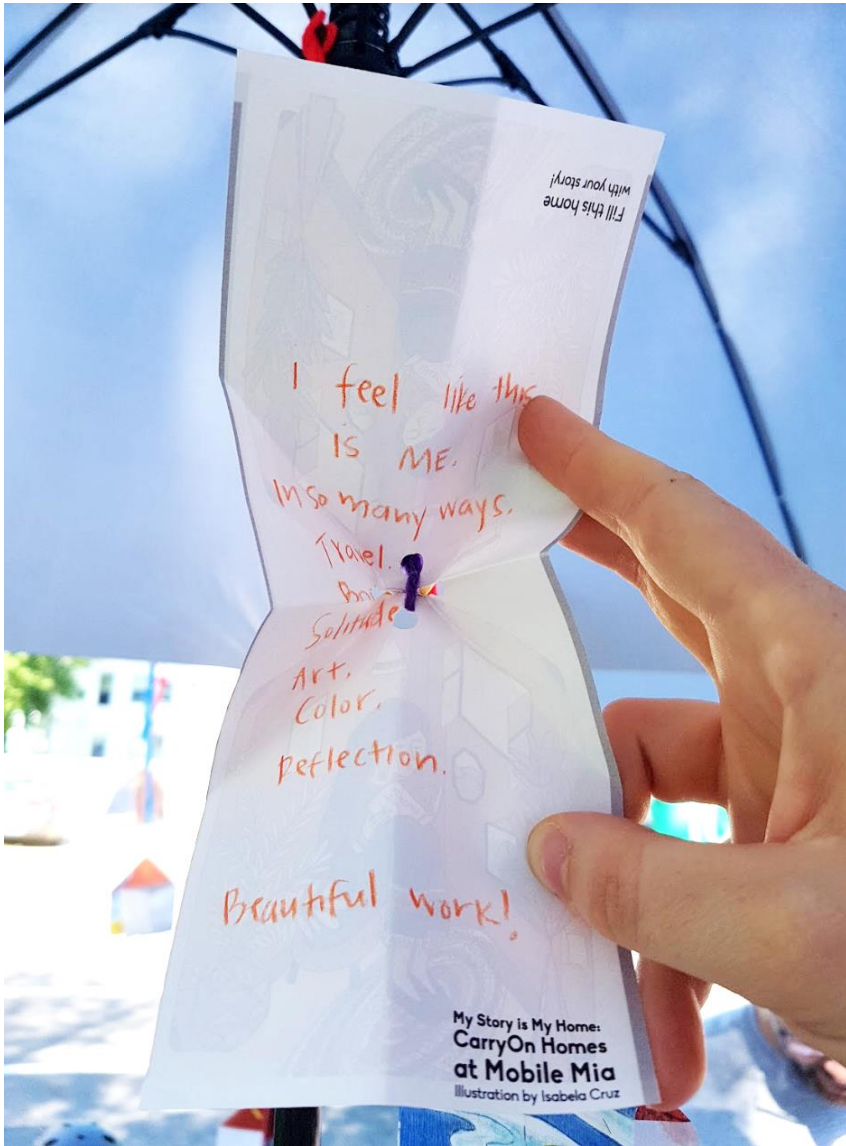 Fill this home
with your story!
I feel like this
IS ME.
In so many ways.
Travel.
Solitude
Art.
Color.
Reflection.
Beautiful work!
My Story is My Home:
CarryOn Homes
at Mobile Mia
Illustration by Isabela Cruz